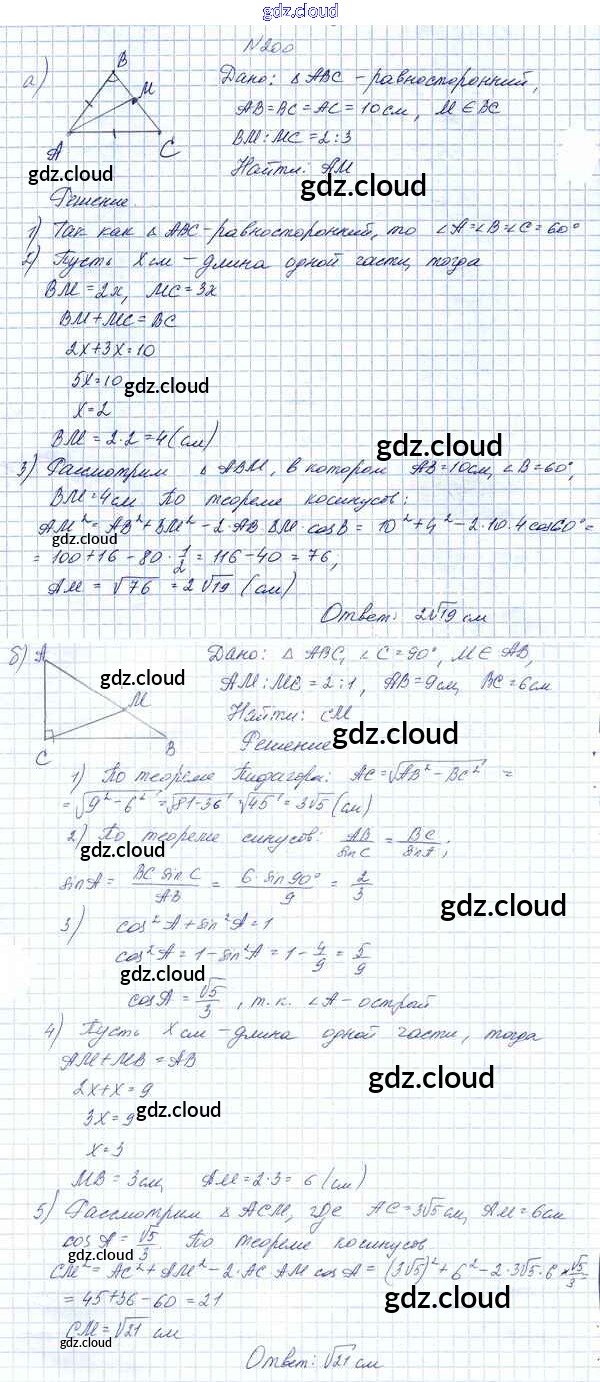 gdz.cloud
N200
а)
B
M
A
C
Дано: △ABC - равносторонний,
AB=BC=AC=10см, M∈BC
BM:MC=2:3
Найти: AM
gdz.cloud
gdz.cloud
Решение
1) Так как △ABC-равносторонний, то ∠A=∠B=∠C=60°
2) Пусть X см - длина одной части, тогда
BM=2x, MC=3x
BM+MC=BC
2x+3x=10
5x=10
gdz.cloud
x=2
BM=2·2=4(см)
gdz.cloud
3) Рассмотрим △ABM, в котором AB=10см, ∠B=60°,
BM=4см По теореме косинусов:
AM²=AB²+BM²-2·AB·BM·cosB=10²+4²-2·10·4cos60°=
=100+16-80·1/2=116-40=76;
AM=√76=2√19(см)
Ответ: 2√19 см
б)
A
M
C
B
gdz.cloud
Дано: △ABC, ∠C=90°, M∈AB,
AM:MB=2:1, AB=9см, BC=6см
Найти: CM
gdz.cloud
Решение
1) По теореме Пифагора: AC=√AB²-BC² =
=√9²-6²=√81-36 √45=3√5(см)
2) По теореме синусов: AB/sinC=BC/sinA;
gdz.cloud
sinA=BC sinC/AB=6·sin90°/9=2/3
gdz.cloud
3) cos²A+sin²A=1
cos²A=1-sin²A=1-4/9=5/9
gdz.cloud
cosA=√5/3, т.к. ∠A-острый
4) Пусть X см - длина одной части, тогда
AM+MB=AB
gdz.cloud
2x+x=9
3x=9
gdz.cloud
x=3
MB=3см, AM=2·3=6(см)
5) Рассмотрим △ACM, где AC=3√5см, AM=6см
cosA=√5/3 По теореме косинусов
gdz.cloud
CM²=AC²+AM²-2·AC·AM cosA=(3√5)²+6²-2·3√5·6×√5/3=
=45+36-60=21
gdz.cloud
CM=√21 см
gdz.cloud
Ответ: √21 см